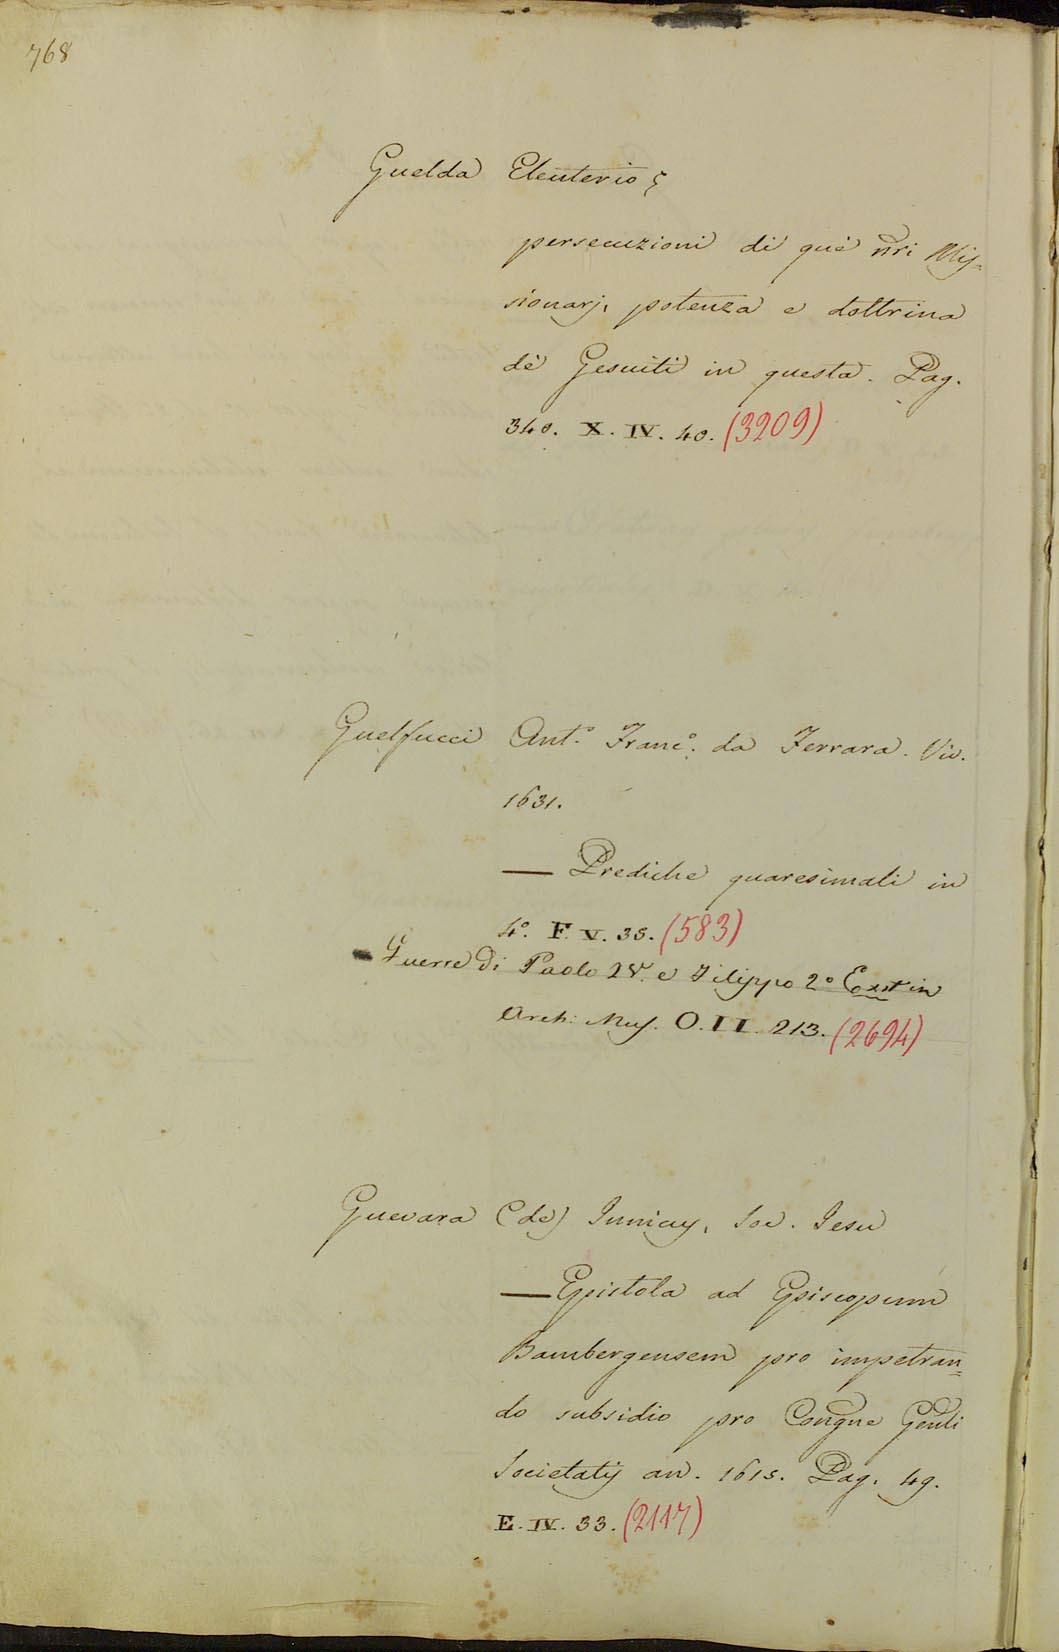 768
Guelda Eleuterio,
persecuzioni di què nri Mis=
sionarj, potenza e dottrina
dè Gesuiti in questa. Pag.
340. X. IV. 40. (3209)
Guelfucci Ant.° Franc.° da Ferrara. Viv.
1631.
— Prediche quaresimali in
4.° F. V. 35. (583)
Guerre di Paolo e Filippo 2° Exst in
Arch: Mss. O. II. 213. (2694)
Guevara (de) Innicus, Soc. Jesu
— Epistola ad Episcopum
Bambergensem pro impetran=
do subsidio pro Congne Genli
Societatis an. 1615. Pag. 49.
E. IV. 33. (2117)